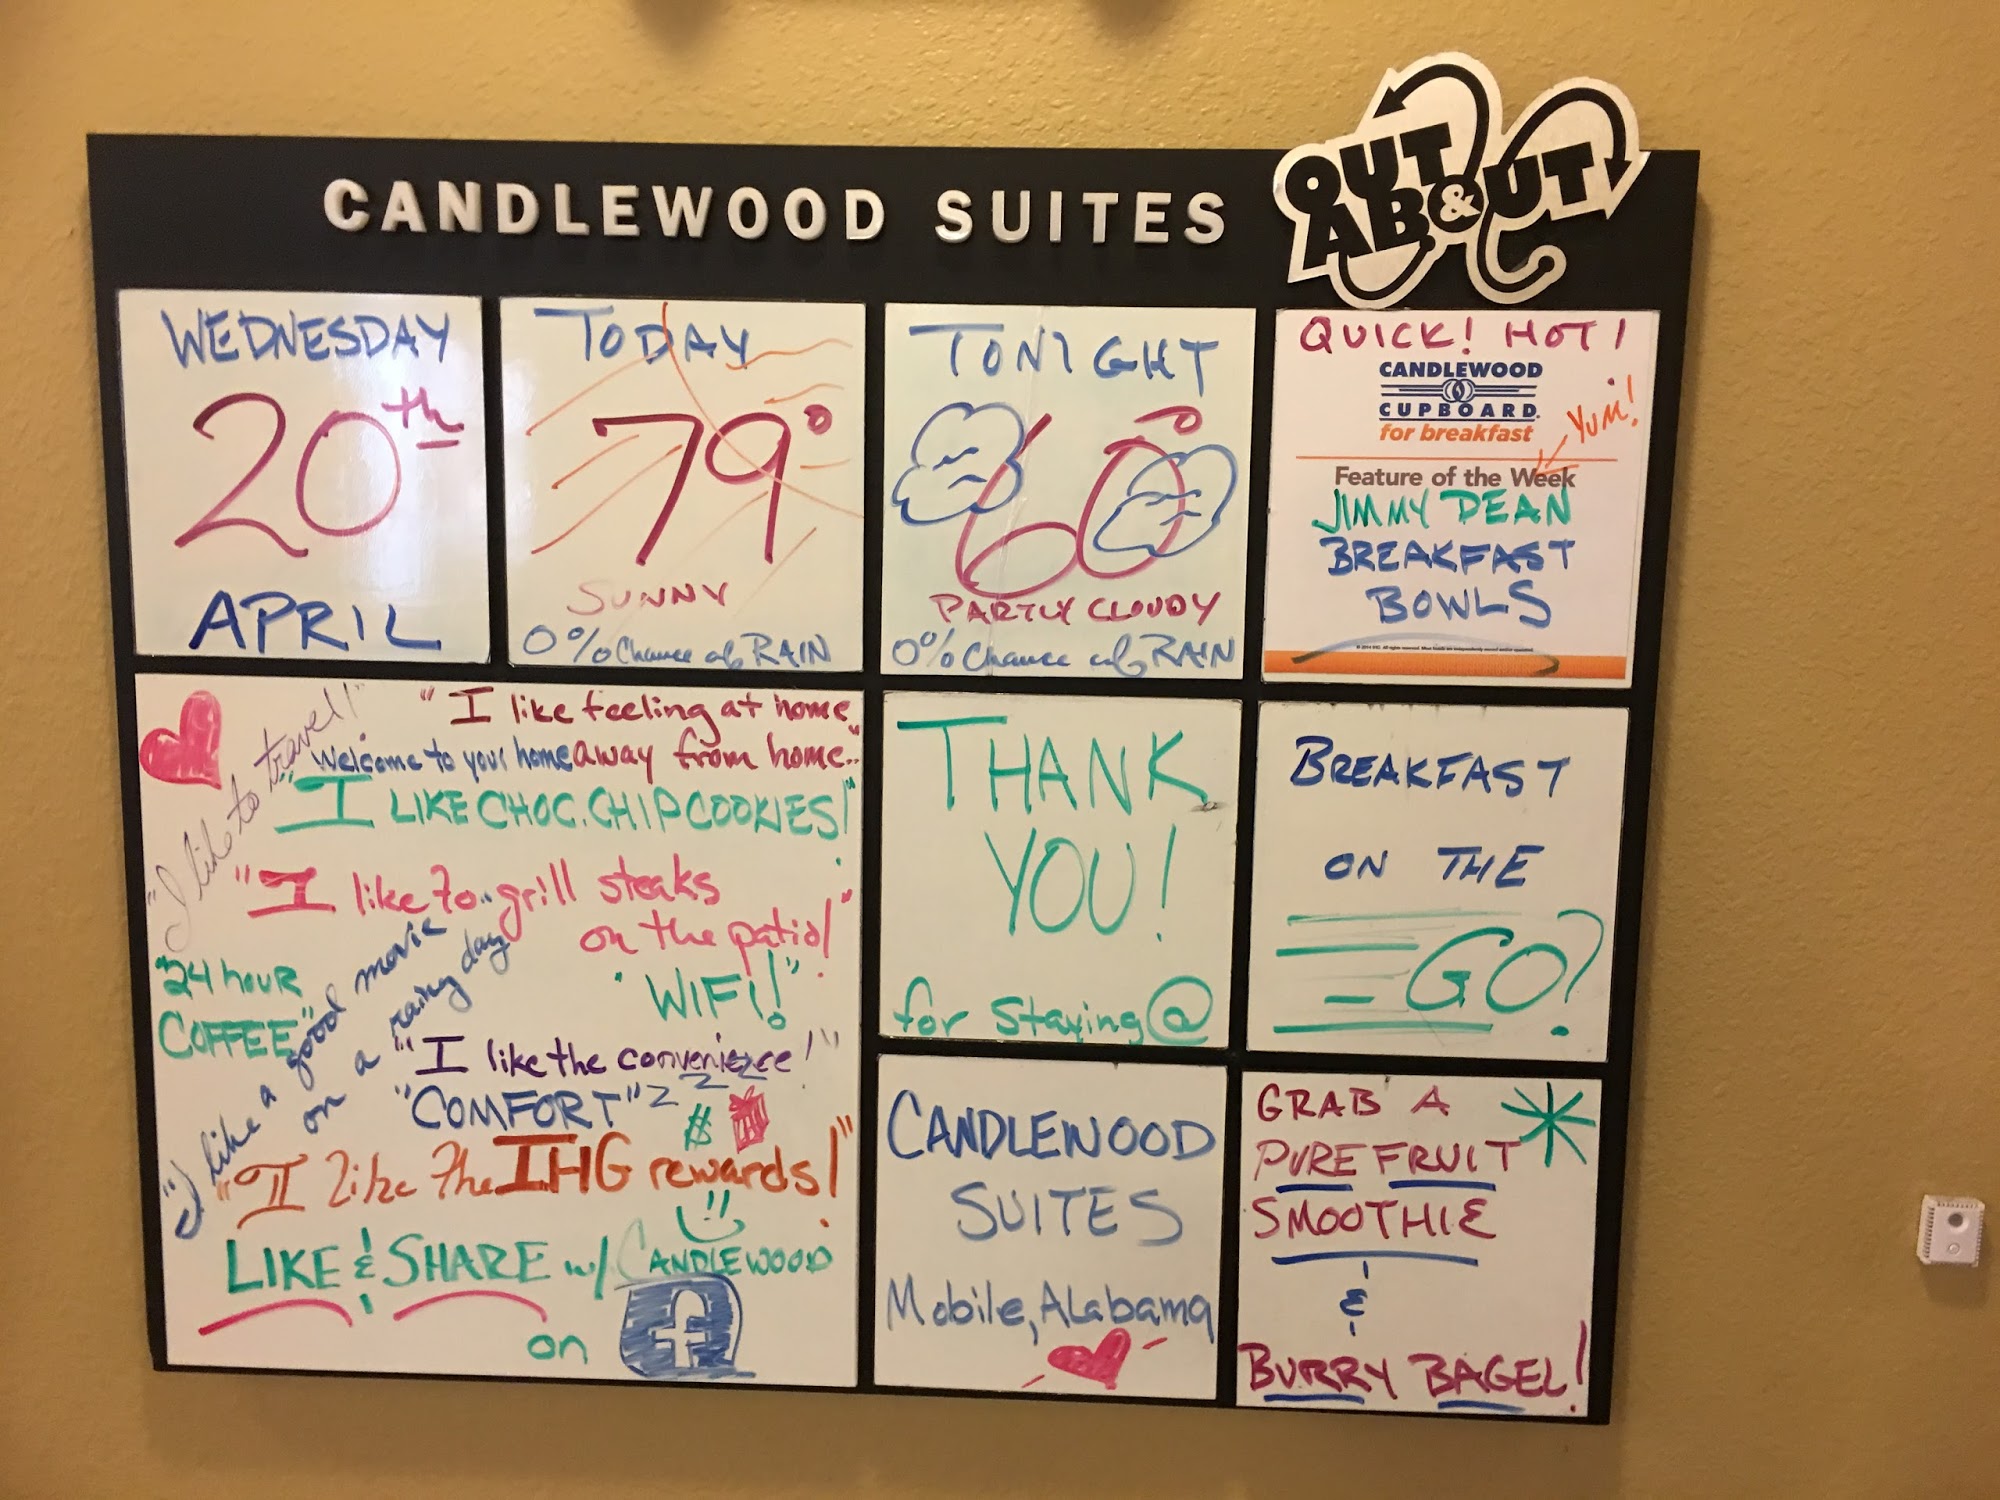 CANDLEWOOD SUITES
OUT
& ABOUT
WEDNESDAY
20th
APRIL
TODAY
79°
SUNNY
0% Chance of RAIN
TONIGHT
60°
PARTLY CLOUDY
0% Chance of RAIN
QUICK! HOT!
CANDLEWOOD
CUPBOARD
for breakfast
YUM!
Feature of the Week
JIMMY DEAN
BREAKFAST
BOWLS
"I like to travel!"
"I like feeling at home"
"Welcome to your home away from home.."
"I LIKE CHOC. CHIP COOKIES!"
"I like to grill steaks
on the patio!"
"24 hour
COFFEE"
"WIFI!"
"I like a good movie
on a rainy day"
"I like the convenience!"
"COMFORT" z z z z
$
"I like the IHG rewards!"
LIKE & SHARE w/ CANDLEWOOD
on f
THANK
YOU!
for staying @
CANDLEWOOD
SUITES
Mobile, Alabama
BREAKFAST
ON THE
GO?
GRAB A
PURE FRUIT
SMOOTHIE
&
BURRY BAGEL!